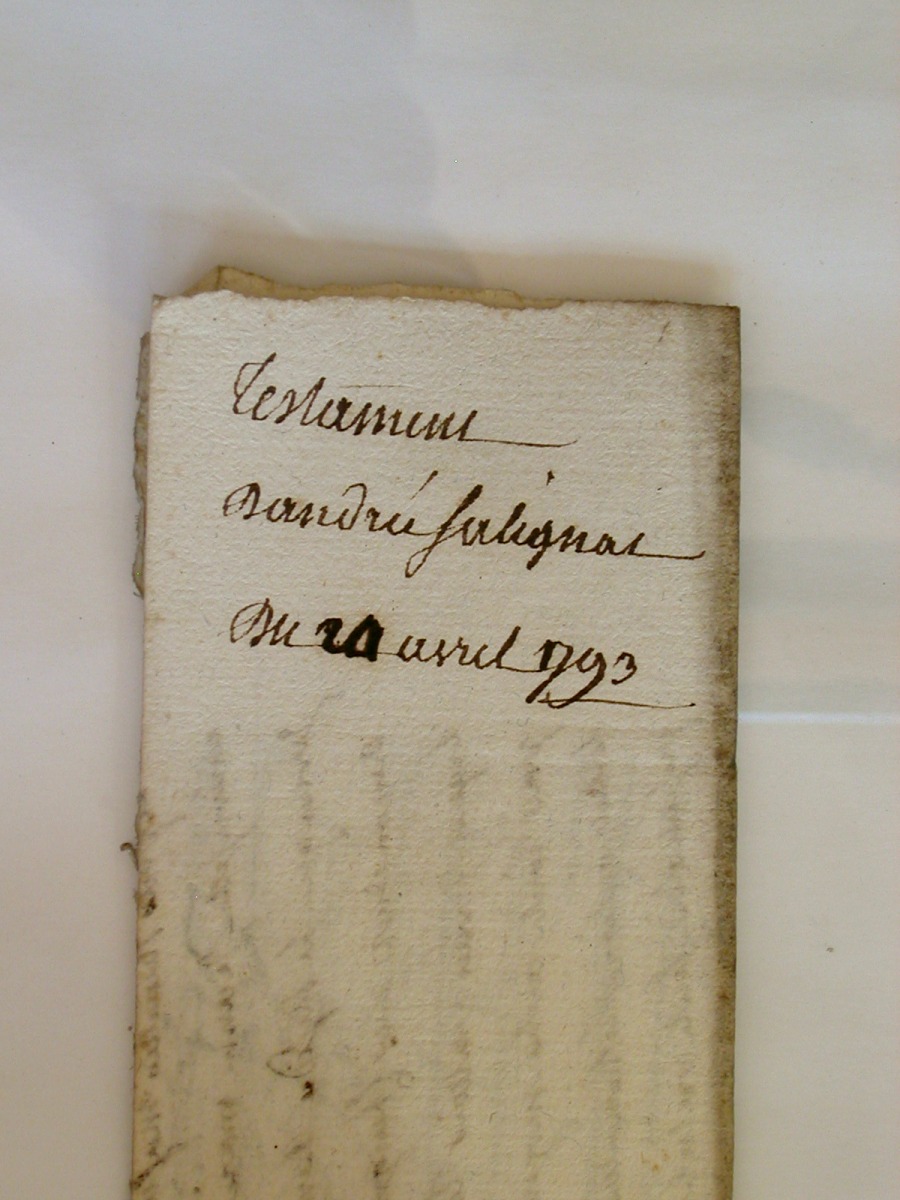 Testament
Dandré Salignac
Du 20 avril 1793